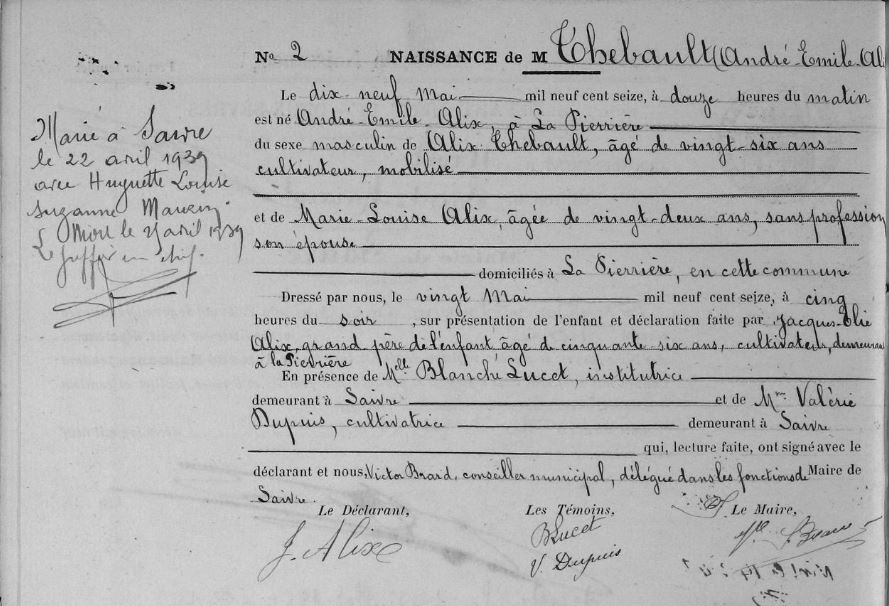 No 2 NAISSANCE de M Thebault (André-Emile-Al
Le dix-neuf Mai mil neuf cent seize, à douze heures du matin
est né André-Emile-Alix, à La Pierrière
du sexe masculin de Alix Thebault, âgé de vingt-six ans
cultivateur, mobilisé
et de Marie-Louise Alix, âgée de vingt-deux ans, sans profession
son épouse
domiciliés à La Pierrière, en cette commune
Dressé par nous, le vingt Mai mil neuf cent seize, à cinq
heures du soir, sur présentation de l'enfant et déclaration faite par Jacques-Elie
Alix, grand père de l'enfant âgé de cinquante six ans, cultivateur, demeurant
à la Pierrière
En présence de Melle Blanche Lucet, institutrice
demeurant à Saivre et de Mme Valérie
Dupuis, cultivatrice demeurant à Saivre
qui, lecture faite, ont signé avec le
déclarant et nous, Victor Brard, conseiller municipal, délégué dans les fonctions de Maire de
Saivre.
Le Déclarant, Les Témoins, Le Maire,
J. Alix
BLucet
V. Dupuis
Marié à Saivre
le 22 avril 1939
avec Huguette Louise
Suzanne
avril 1939
Le greffier en chef.